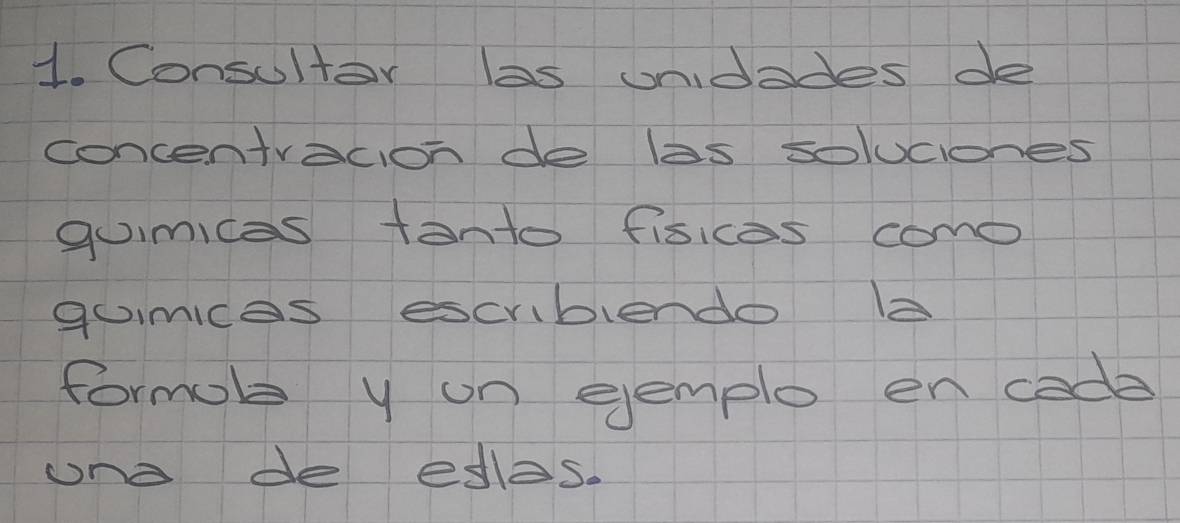 1. Consultar las unidades de
concentración de las soluciones
quimicas tanto fisicas como
quimicas escribiendo la
formula y un ejemplo en cada
una de ellas.